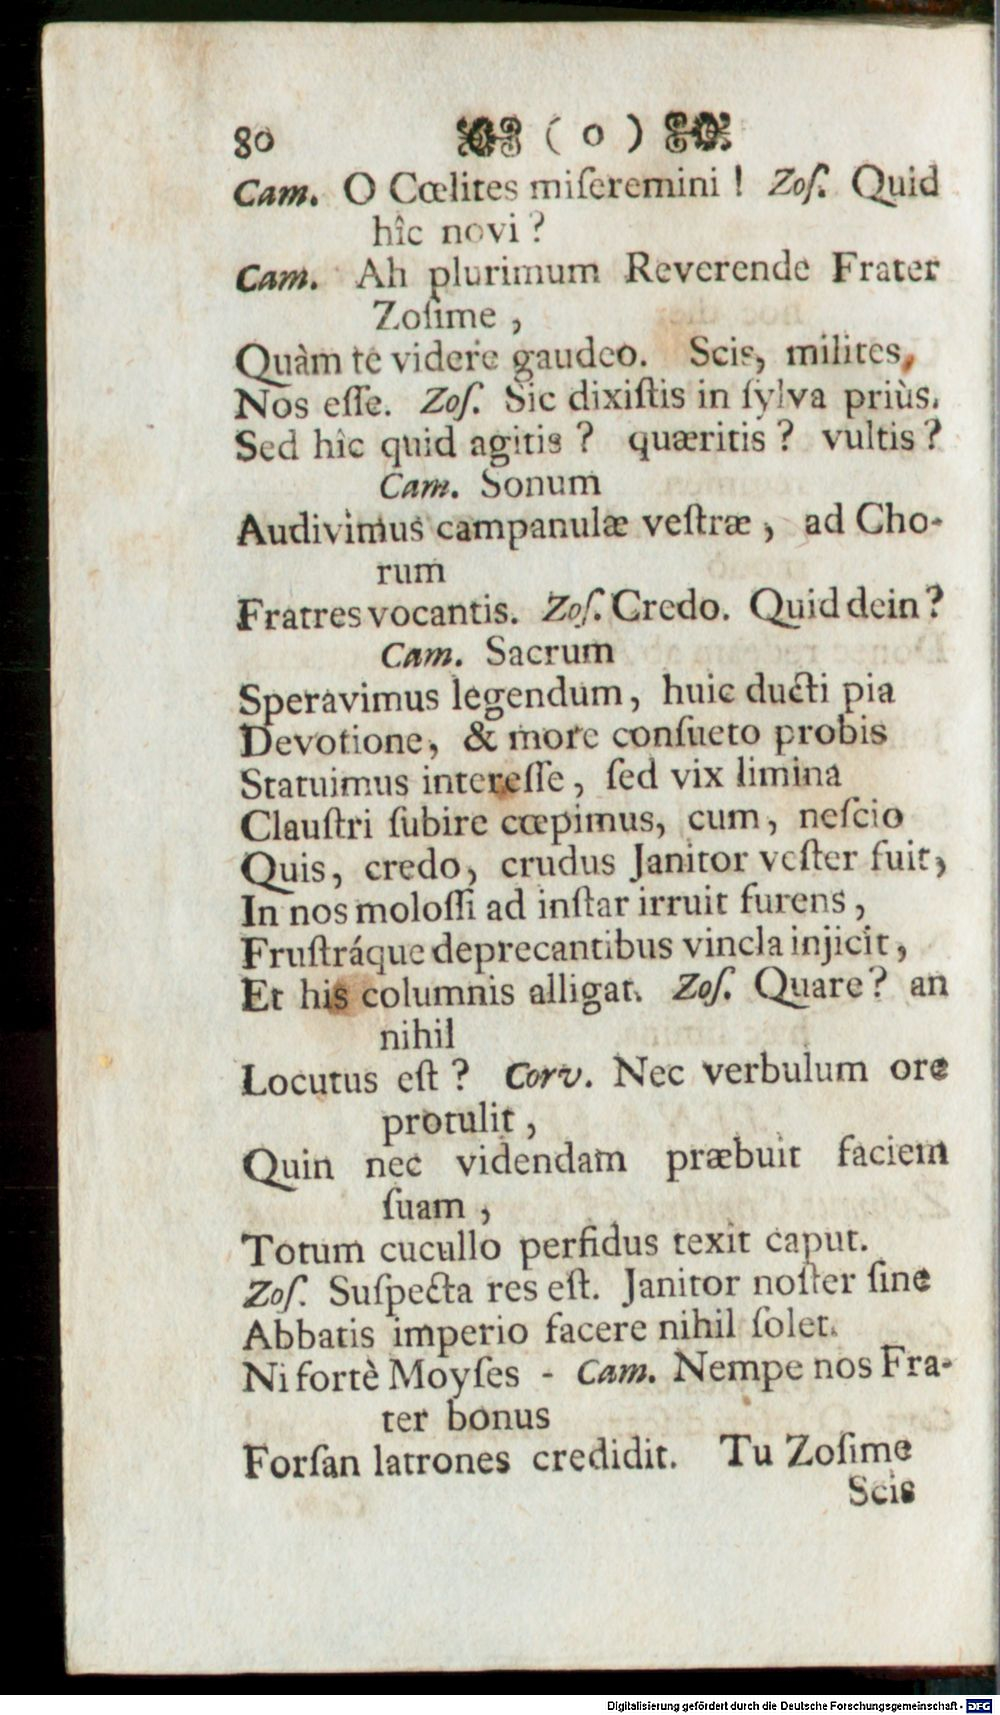 80 ( o )
Cam. O Cœlites miſeremini ! Zoſ. Quid
hîc novi ?
Cam. Ah plurimum Reverende Frater
Zoſime ,
Quàm te videre gaudeo. Scis, milites,
Nos eſſe. Zoſ. Sic dixiſtis in ſylva priùs.
Sed hîc quid agitis ? quæritis ? vultis ?
Cam. Sonum
Audivimus campanulæ veſtræ , ad Cho-
rum
Fratres vocantis. Zoſ. Credo. Quid dein ?
Cam. Sacrum
Speravimus legendum, huic ducti pia
Devotione, & more conſueto probis
Statuimus intereſſe , ſed vix limina
Clauſtri ſubire cœpimus, cum, neſcio
Quis, credo, crudus Janitor veſter fuit,
In nos moloſſi ad inſtar irruit furens ,
Fruſtráque deprecantibus vincla injicit ,
Et his columnis alligat. Zoſ. Quare ? an
nihil
Locutus eſt ? Corv. Nec verbulum ore
protulit ,
Quin nec videndam præbuit faciem
ſuam ,
Totum cucullo perfidus texit caput.
Zoſ. Suſpecta res eſt. Janitor noſter ſine
Abbatis imperio facere nihil ſolet.
Ni fortè Moyſes - Cam. Nempe nos Fra-
ter bonus
Forſan latrones credidit. Tu Zoſime
Scis
Digitalisierung gefördert durch die Deutsche Forschungsgemeinschaft - DFG